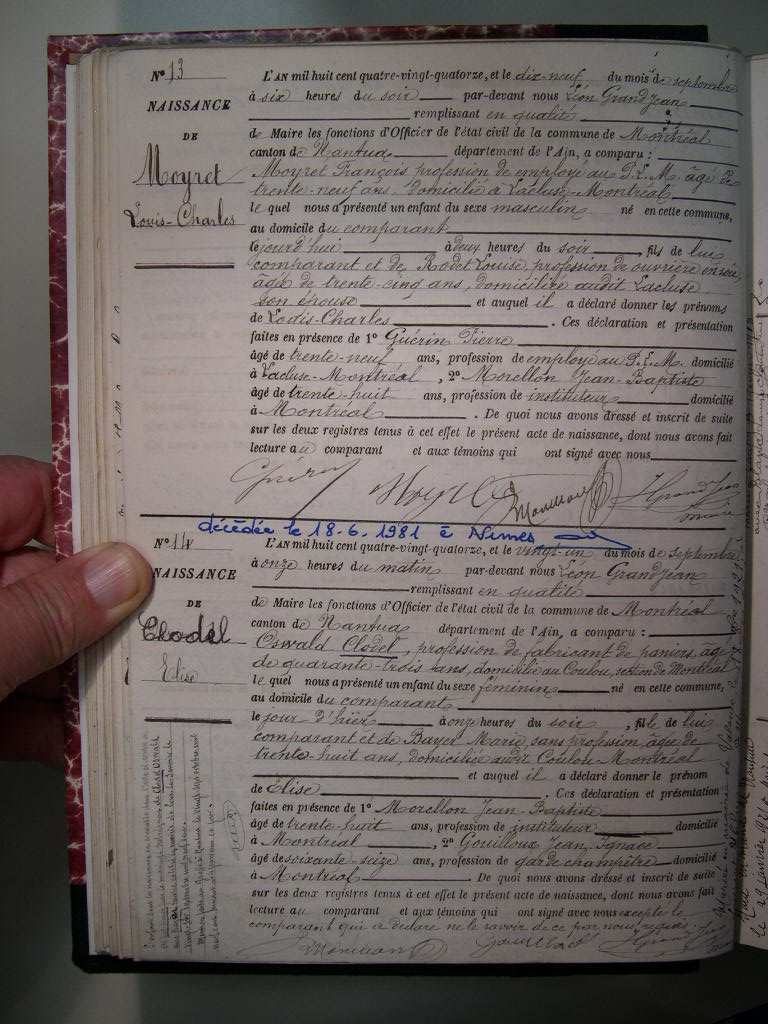 N° 13
NAISSANCE
DE
Moyret
Louis-Charles
L'AN mil huit cent quatre-vingt-quatorze, et le dix-neuf du mois de septembre
à six heures du soir par-devant nous Léon Grandjean
remplissant en qualité
de Maire les fonctions d'Officier de l'état civil de la commune de Montréal
canton de Nantua département de l'Ain, a comparu :
Moyret François profession de employé au P.L.M. âgé de
trente-neuf ans, domicilié à Lacluse-Montréal
lequel nous a présenté un enfant du sexe masculin né en cette commune,
au domicile du comparant
lejourd'hui à deux heures du soir, fils de lui
comparant et de Rodet Louise, profession de ouvrière en soie
âgée de trente-cinq ans, domiciliée audit Lacluse
son épouse et auquel il a déclaré donner les prénoms
de Louis-Charles. Ces déclaration et présentation
faites en présence de 1° Guérin Pierre
âgé de trente-neuf ans, profession de employé au P.L.M. domicilié
à Lacluse-Montréal, 2° Morellon Jean-Baptiste
âgé de trente-huit ans, profession de instituteur domicilié
à Montréal. De quoi nous avons dressé et inscrit de suite
sur les deux registres tenus à cet effet le présent acte de naissance, dont nous avons fait
lecture au comparant et aux témoins qui ont signé avec nous
Guérin Moyret Morellon LGrandjean
maire
décédée le 18-6-1981 à Nîmes
N° 14
NAISSANCE
DE
Clodel
Elise
L'AN mil huit cent quatre-vingt-quatorze, et le vingt-un du mois de septembre
à onze heures du matin par-devant nous Léon Grandjean
remplissant en qualité
de Maire les fonctions d'Officier de l'état civil de la commune de Montréal
canton de Nantua département de l'Ain, a comparu :
Oswald Clodel, profession de fabricant de paniers, âgé
de quarante-trois ans, domicilié au Coulou, section de Montréal
le quel nous a présenté un enfant du sexe féminin né en cette commune,
au domicile du comparant
le jour d'hier à onze heures du soir, fille de lui
comparant et de Bayer Marie, sans profession âgée de
trente-huit ans, domiciliée audit Coulou-Montréal
et auquel il a déclaré donner le prénom
de Elise. Ces déclaration et présentation
faites en présence de 1° Morellon Jean-Baptiste
âgé de trente-huit ans, profession de instituteur domicilié
à Montréal, 2° Gouilloux Jean Ignace
âgé de soixante-seize ans, profession de garde champêtre domicilié
à Montréal. De quoi nous avons dressé et inscrit de suite
sur les deux registres tenus à cet effet le présent acte de naissance, dont nous avons fait
lecture au comparant et aux témoins qui ont signé avec nous excepté le
comparant qui a déclaré ne le savoir de ce par nous requis
Morellon Gouilloux LGrandjean